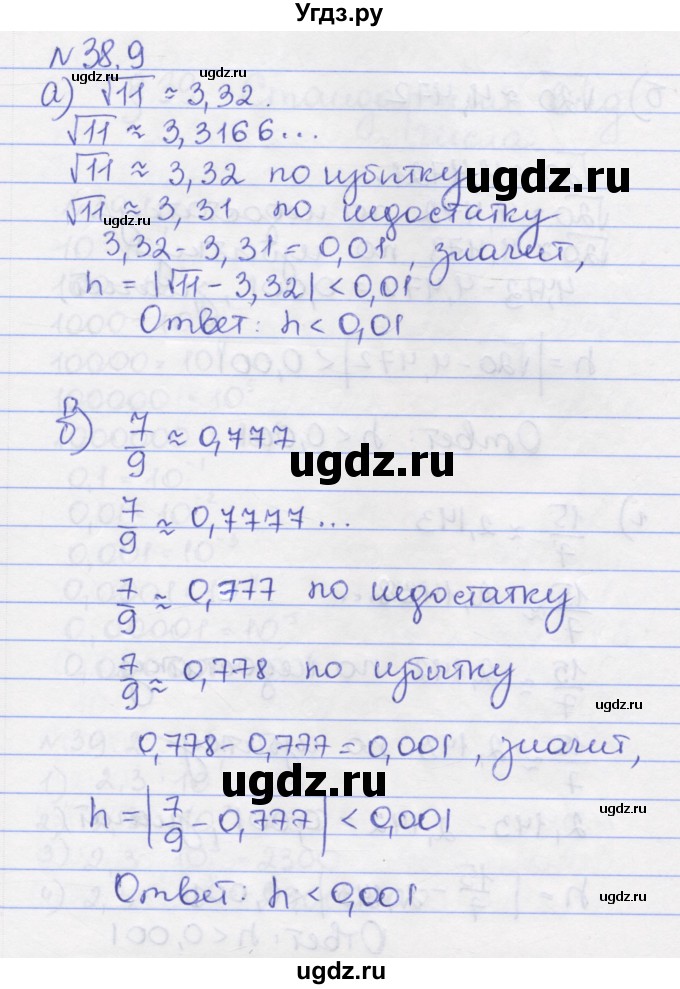 Угдз.ру
N 38.9
ugdz.ru
ugdz.ru
а) √11 ≈ 3,32.
√11 ≈ 3,3166...
√11 ≈ 3,32 по избытку
ugdz.ru
√11 ≈ 3,31 по недостатку
ugdz.ru
3,32 - 3,31 = 0,01, значит,
h = |√11 - 3,32| < 0,01
ugdz.ru
Ответ: h < 0,01
ugdz.ru
в
б) 7/9 ≈ 0,777
ugdz.ru
7/9 ≈ 0,7777...
7/9 ≈ 0,777 по недостатку
ugdz.ru
7/9 ≈ 0,778 по избытку
ugdz.ru
0,778 - 0,777 = 0,001, значит,
ugdz.ru
h = |7/9 - 0,777| < 0,001
Ответ: h < 0,001
ugdz.ru
ugdz.ru